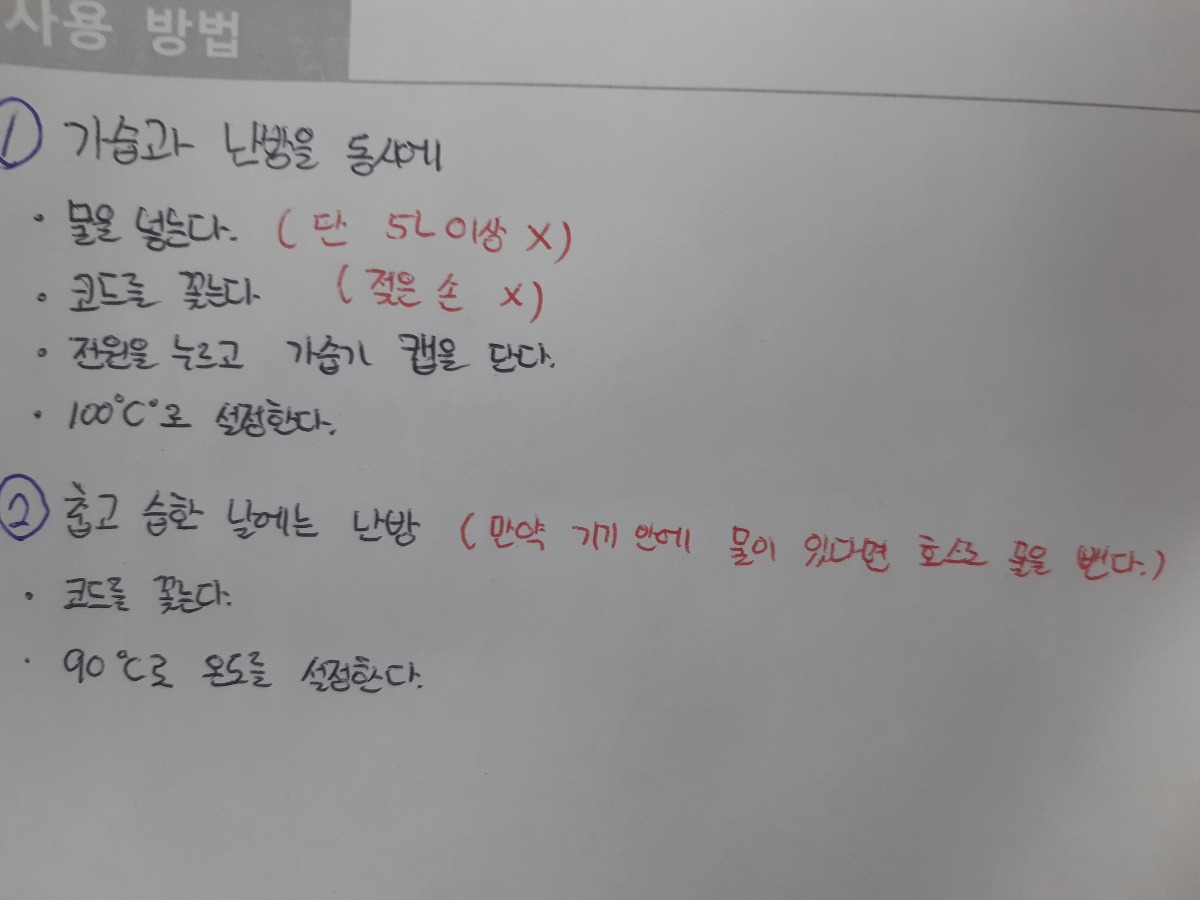 사용 방법
① 가습과 난방을 동시에
· 물을 넣는다. (단 5L 이상 X)
· 코드를 꽂는다 (젖은 손 X)
· 전원을 누르고 가습기 캡을 단다.
· 100°C°로 설정한다.
② 춥고 습한 날에는 난방 (만약 기기 안에 물이 있다면 호스로 물을 뺀다.)
· 코드를 꽂는다.
· 90°C로 온도를 설정한다.